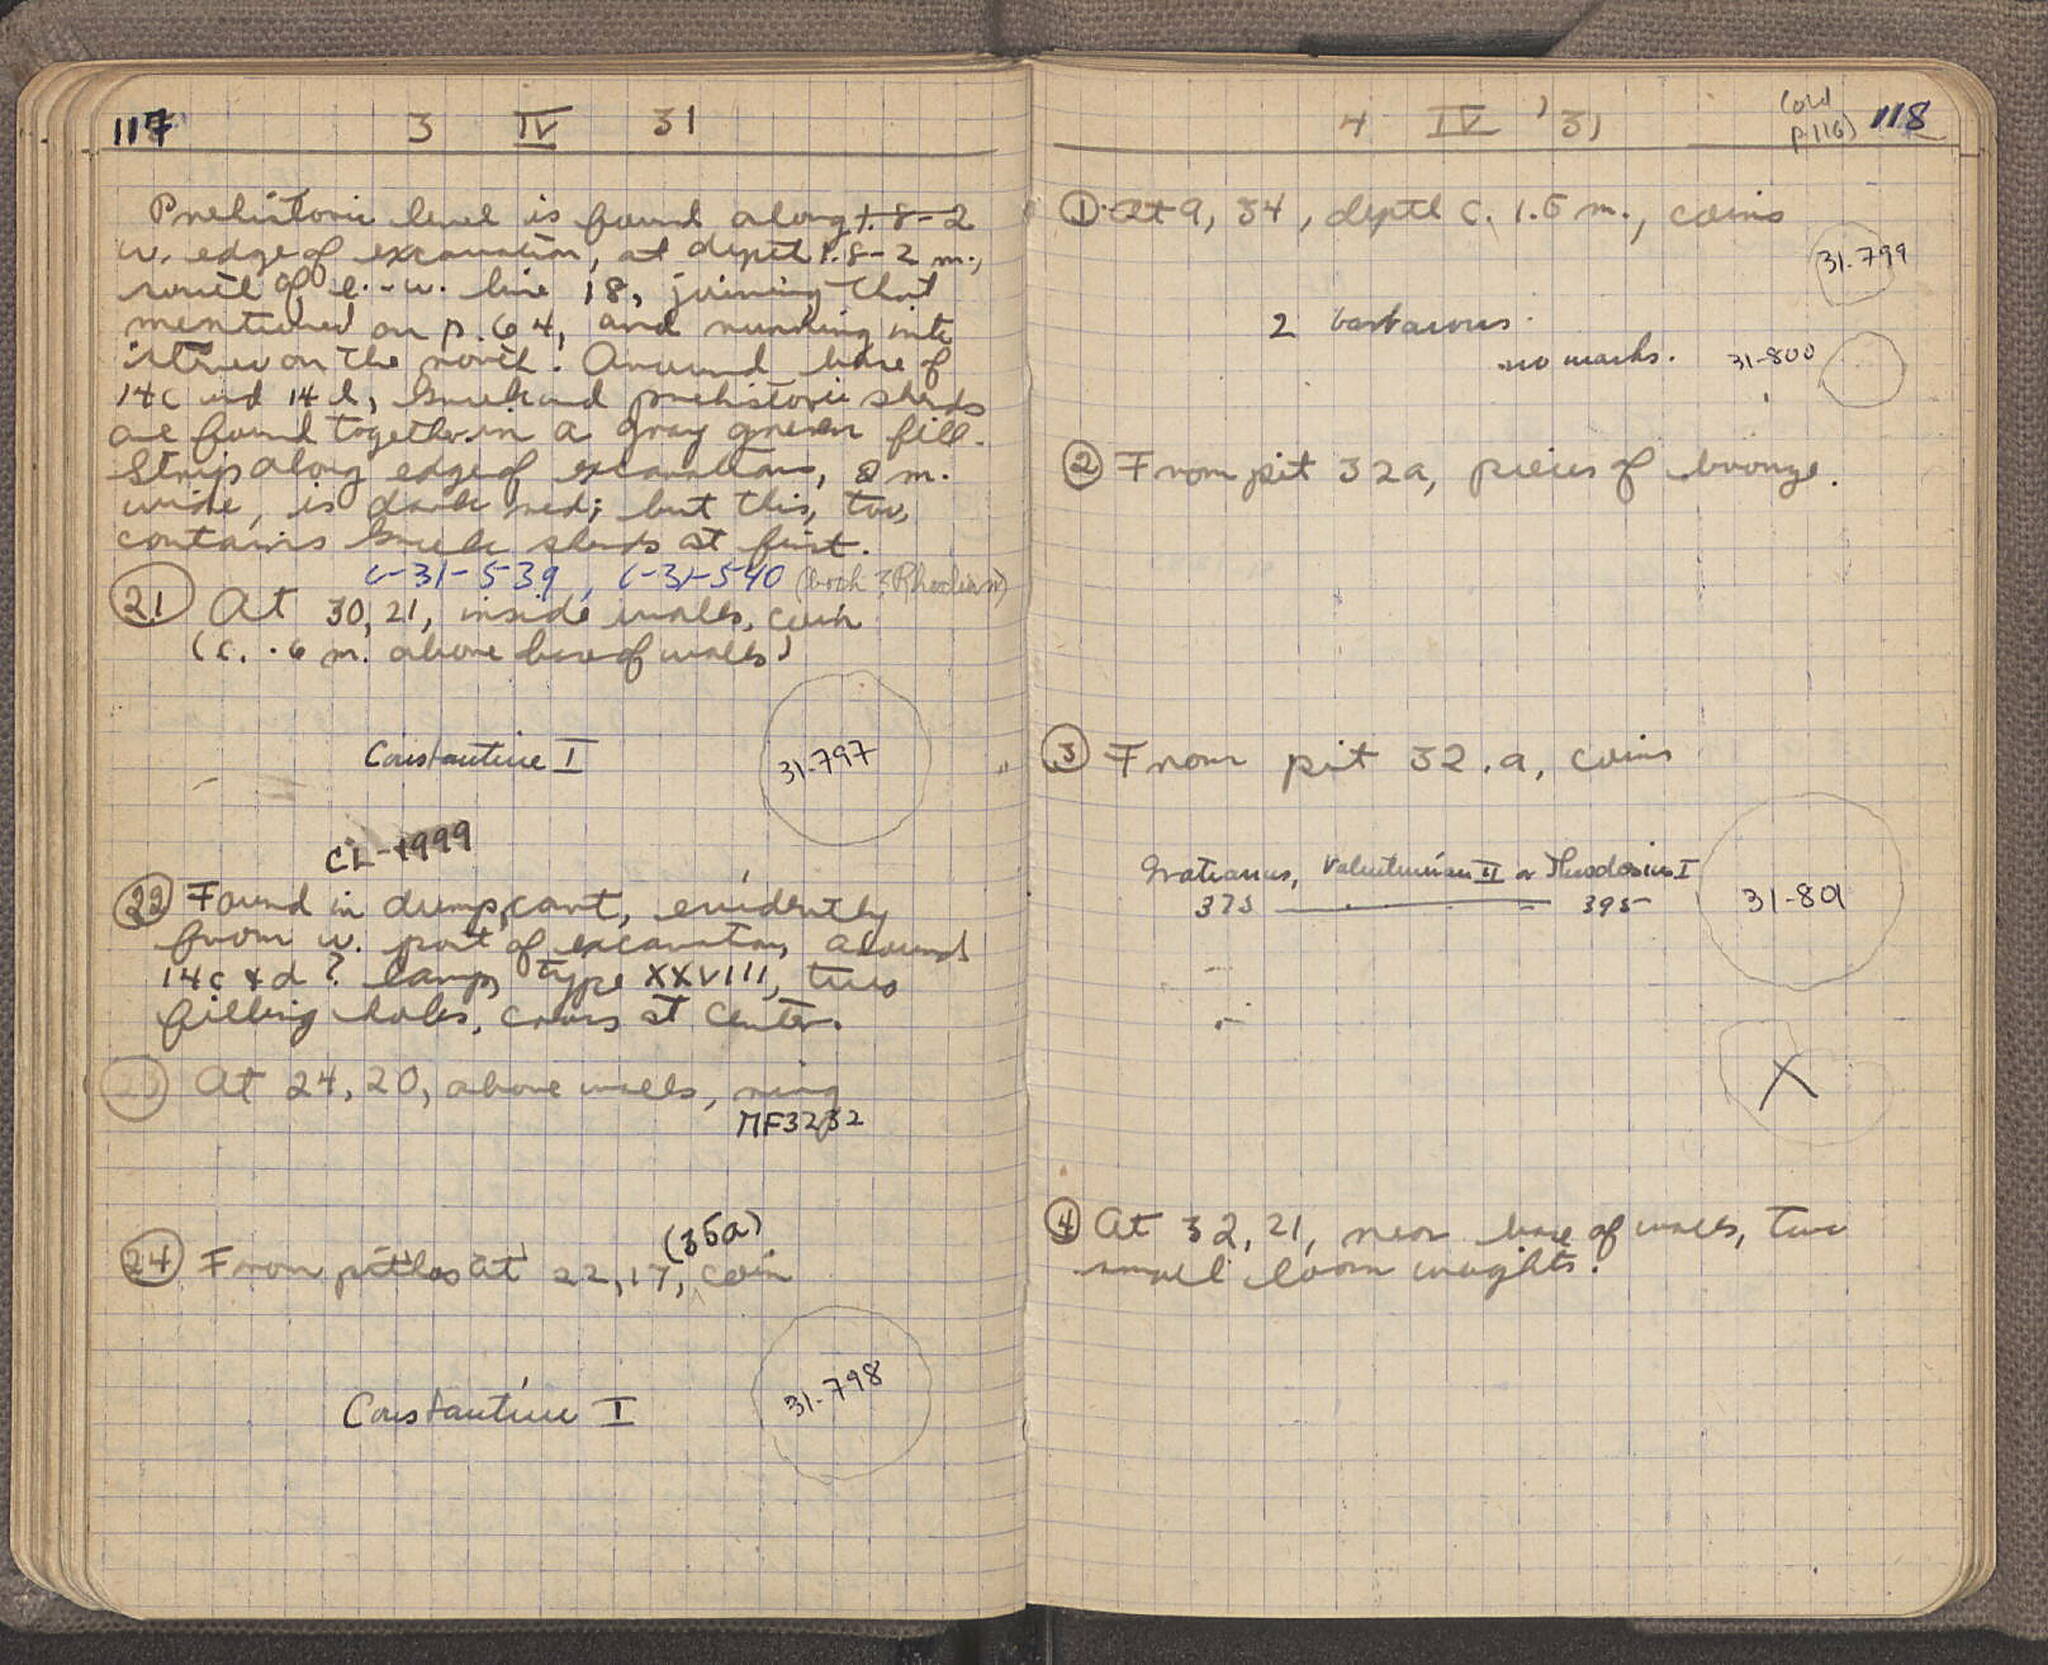 117 3 IV 31
Prehistoric level is found along 1.8-2
w. edge of excavation, at depth 1.8-2 m.,
south of e.-w. line 18, joining that
mentioned on p. 64, and running into
strew on the north. Around base of
14c and 14d, Greek and prehistoric sherds
are found together in a gray green fill.
Strip along edge of excavations, 2 m.
wide, is dark red; but this, too,
contains Greek sherds at first.
C-31-539, C-31-540 (both ? Rhodian)
21 At 30, 21, inside walls, coin
(c. .6 m. above base of walls)
Constantine I 31-797
CL-1999
22 Found in dump cart, evidently
from w. part of excavation, around
14c & d? Lamp, type XXVIII, two
filling holes, cross at center.
23 At 24, 20, above walls, ring
MF3232
(35a)
24 From pithos at 22, 17, coin
Constantine I 31-798
4 IV '31 (old p. 116) 118
1 At 9, 34, depth c. 1.5 m., coins
31-799
2 barbarous.
no marks. 31-800
2 From pit 32a, pieces of bronze.
3 From pit 32.a, coins
Gratianus, Valentinian II or Theodosius I
375 — 395 31-801
X
4 At 32, 21, near base of walls, two
small loom weights.